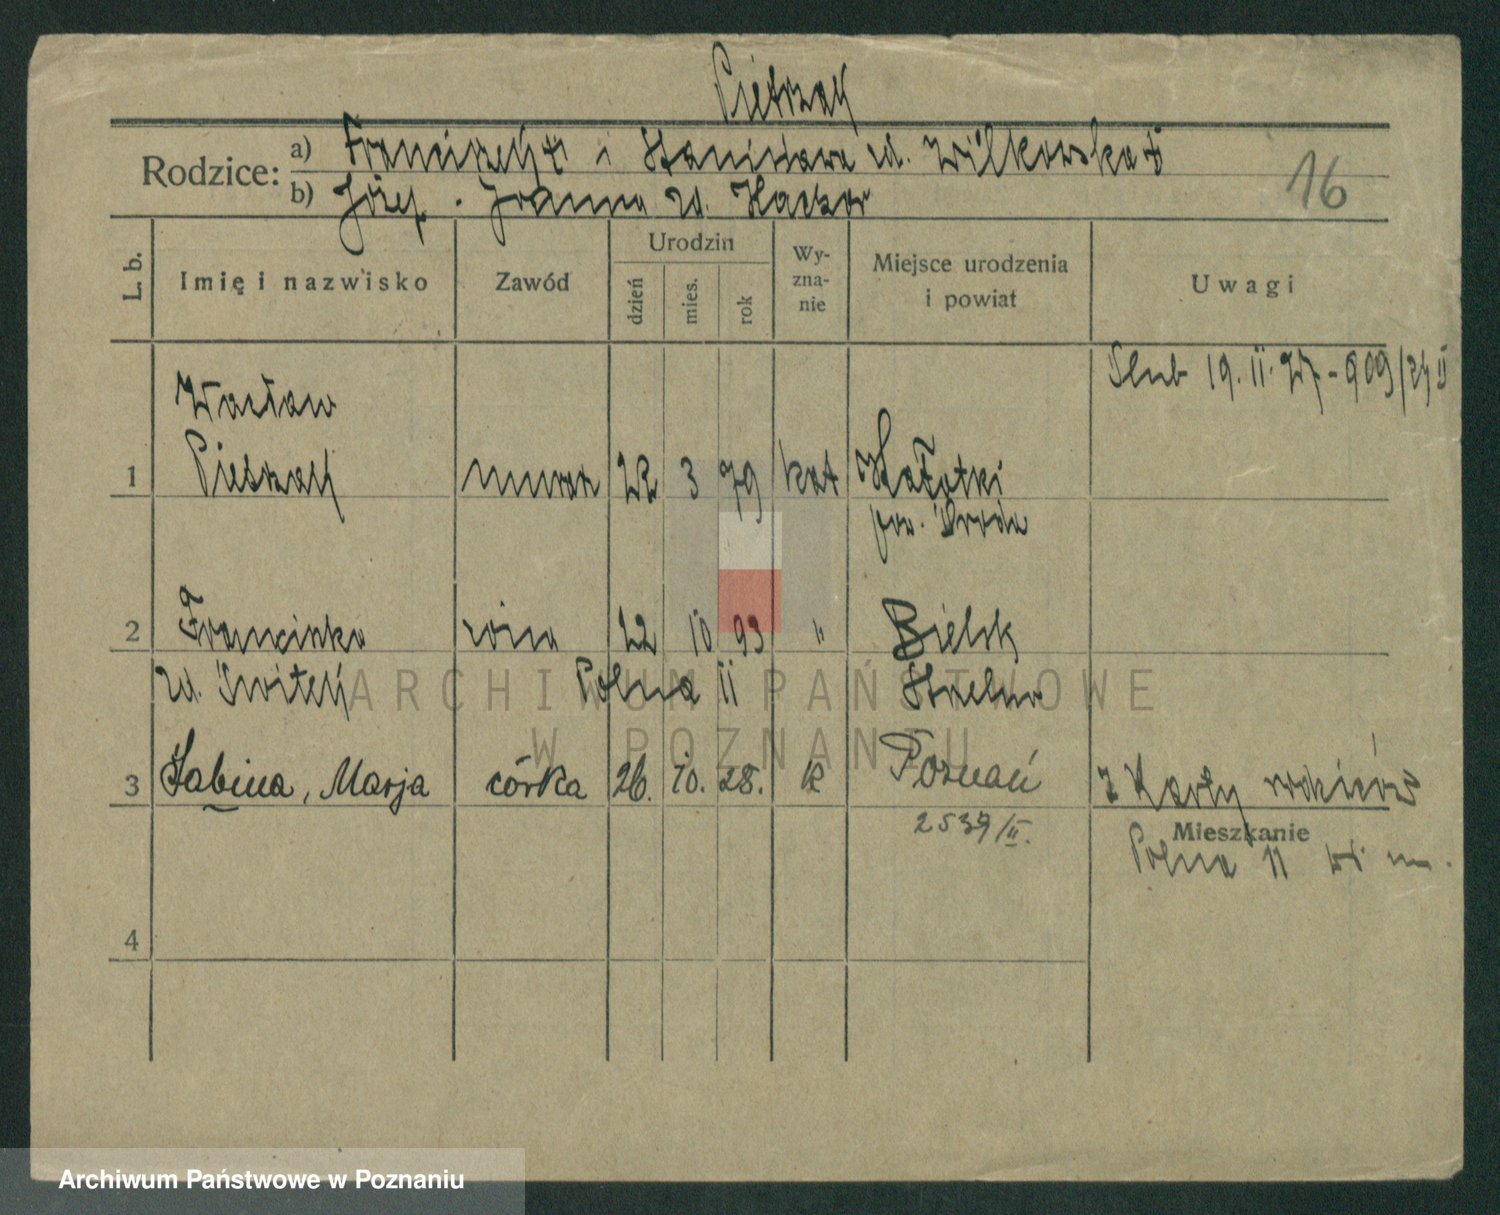 Pietrzak
Rodzice: a) Franciszek † i Stanisława zd. Wilkowska †
b) Józef . Joanna zd. Kaczor
16
L. b.
Imię i nazwisko
Zawód
Urodzin
dzień
mies.
rok
Wy-
zna-
nie
Miejsce urodzenia
i powiat
Uwagi
Ślub 19. II. 27 - 909/24 II
Wacław
1 Pietrzak murarz 22 3 79 kat
pow. Środa
2 Franciszka żona 22 10 93 " Bielsk
zd. Świtek Polna 11 Strzelno
3 Sabina, Marja córka 26. 10. 28. k Poznań z Karty rodziców
2539/II. Mieszkanie
Polna 11
4
ARCHIWUM PAŃSTWOWE
W POZNANIU
Archiwum Państwowe w Poznaniu